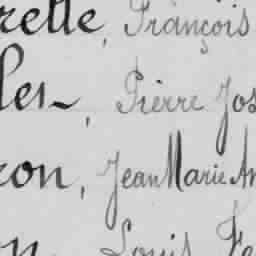 relle, François
les, Pierre Jos
ron, Jean Marie An
on, Louis Fe